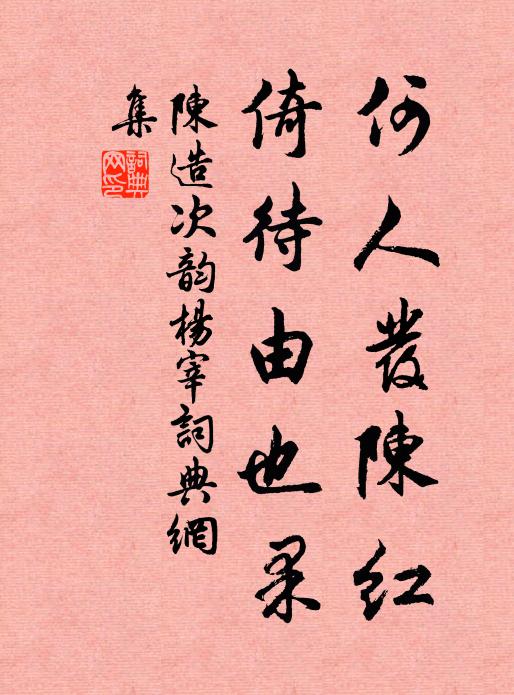 何人發陳紅
倚待由也果
陳造次韵楊宰詞典網
集
詞典網印